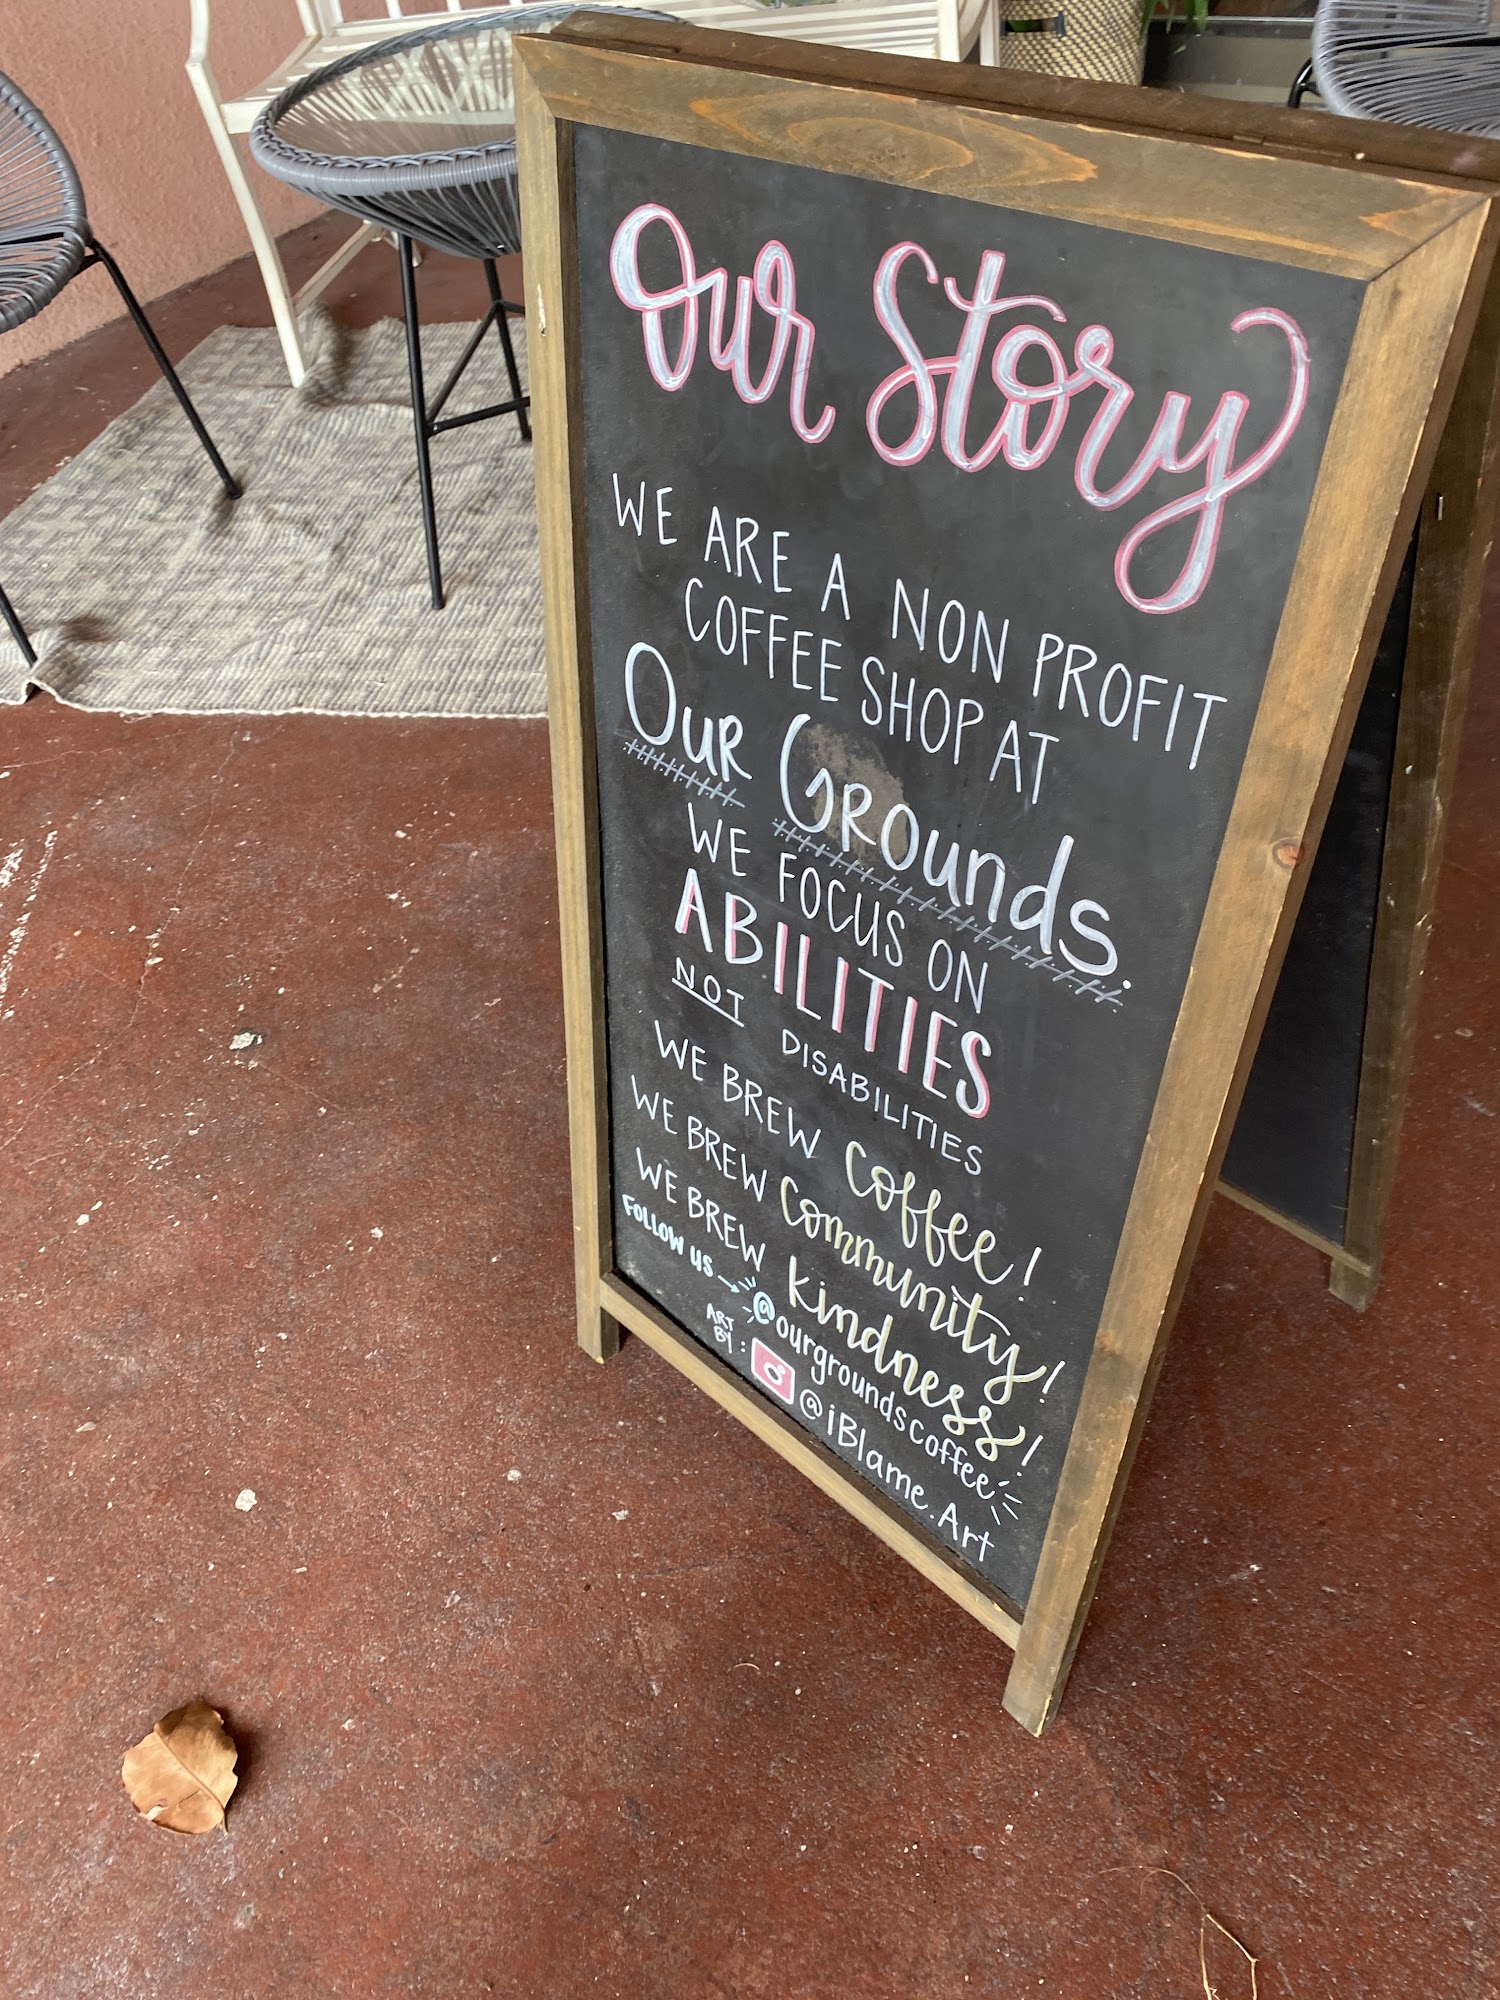 Our Story
WE ARE A NON PROFIT
COFFEE SHOP AT
Our Grounds.
WE FOCUS ON
ABILITIES
NOT DISABILITIES
WE BREW coffee!
WE BREW community!
WE BREW kindness!
FOLLOW US → @ourgroundscoffee
ART BY: @iBlame.Art